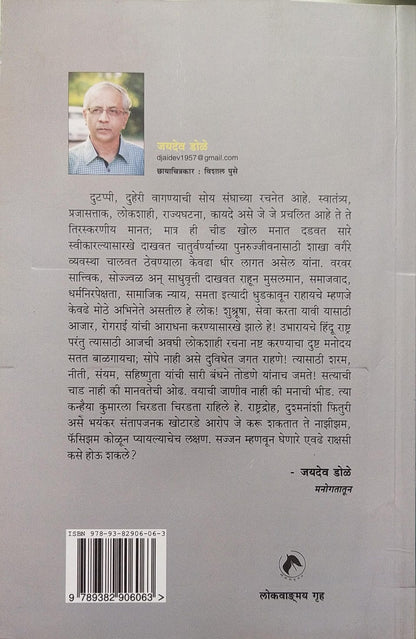 जयदेव डोळे
djaidev1957@gmail.com
छायाचित्रकार : विशाल घुसे
दुटप्पी, दुहेरी वागण्याची सोय संघाच्या रचनेत आहे. स्वातंत्र्य,
प्रजासत्ताक, लोकशाही, राज्यघटना, कायदे असे जे जे प्रचलित आहे ते ते
तिरस्करणीय मानत; मात्र ही चीड खोल मनात दडवत सारे
स्वीकारल्यासारखे दाखवत चातुर्वर्ण्याच्या पुनरुज्जीवनासाठी शाखा वगैरे
व्यवस्था चालवत ठेवण्याला केवढा धीर लागत असेल यांना. वरवर
सात्त्विक, सोज्ज्वळ अन् साधुवृत्ती दाखवत राहून मुसलमान, समाजवाद,
धर्मनिरपेक्षता, सामाजिक न्याय, समता इत्यादी धुडकावून राहायचे म्हणजे
केवढे मोठे अभिनेते असतील हे लोक! शुश्रूषा, सेवा करता यावी यासाठी
आजार, रोगराई यांची आराधना करण्यासारखे झाले हे! उभारायचे हिंदू राष्ट्र
परंतु त्यासाठी आजची अवघी लोकशाही रचना नष्ट करण्याचा दुष्ट मनोदय
सतत बाळगायचा; सोपे नाही असे दुविधेत जगत राहणे! त्यासाठी शरम,
नीती, संयम, सहिष्णुता यांची सारी बंधने तोडणे यांनाच जमते! सत्याची
चाड नाही की मानवतेची ओढ. वयाची जाणीव नाही की मनाची भीड. त्या
कन्हैया कुमारला चिरडता चिरडता राहिले हे. राष्ट्रद्रोह, दुश्मनांशी फितुरी
असे भयंकर संतापजनक खोटारडे आरोप जे करू शकतात ते नाझीझम,
फॅसिझम कोळून प्यायल्याचेच लक्षण. सज्जन म्हणवून घेणारे एवढे राक्षसी
कसे होऊ शकले?
- जयदेव डोळे
मनोगतातून
ISBN 978-93-82906-06-3
9 789382 906063 >
लोकवाङ्मय गृह